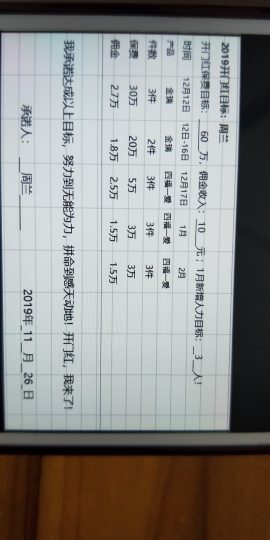 2019开门红目标：周兰
开门红保费目标：60万，佣金收入：10 元；1月新增人力目标：3人！
时间 12月12日 12日-16日 12月17日 1月 2月
产品 金瑞 金瑞 四福一爱 四福一爱 四福一爱
件数 3件 2件 3件 3件 3件
保费 30万 20万 5万 3万 3万
佣金 2.7万 1.8万 2.5万 1.5万 1.5万
我承诺达成以上目标，努力到无能为力，拼命到感天动地！开门红，我来了！
承诺人：周兰 2019年 11 月 26 日